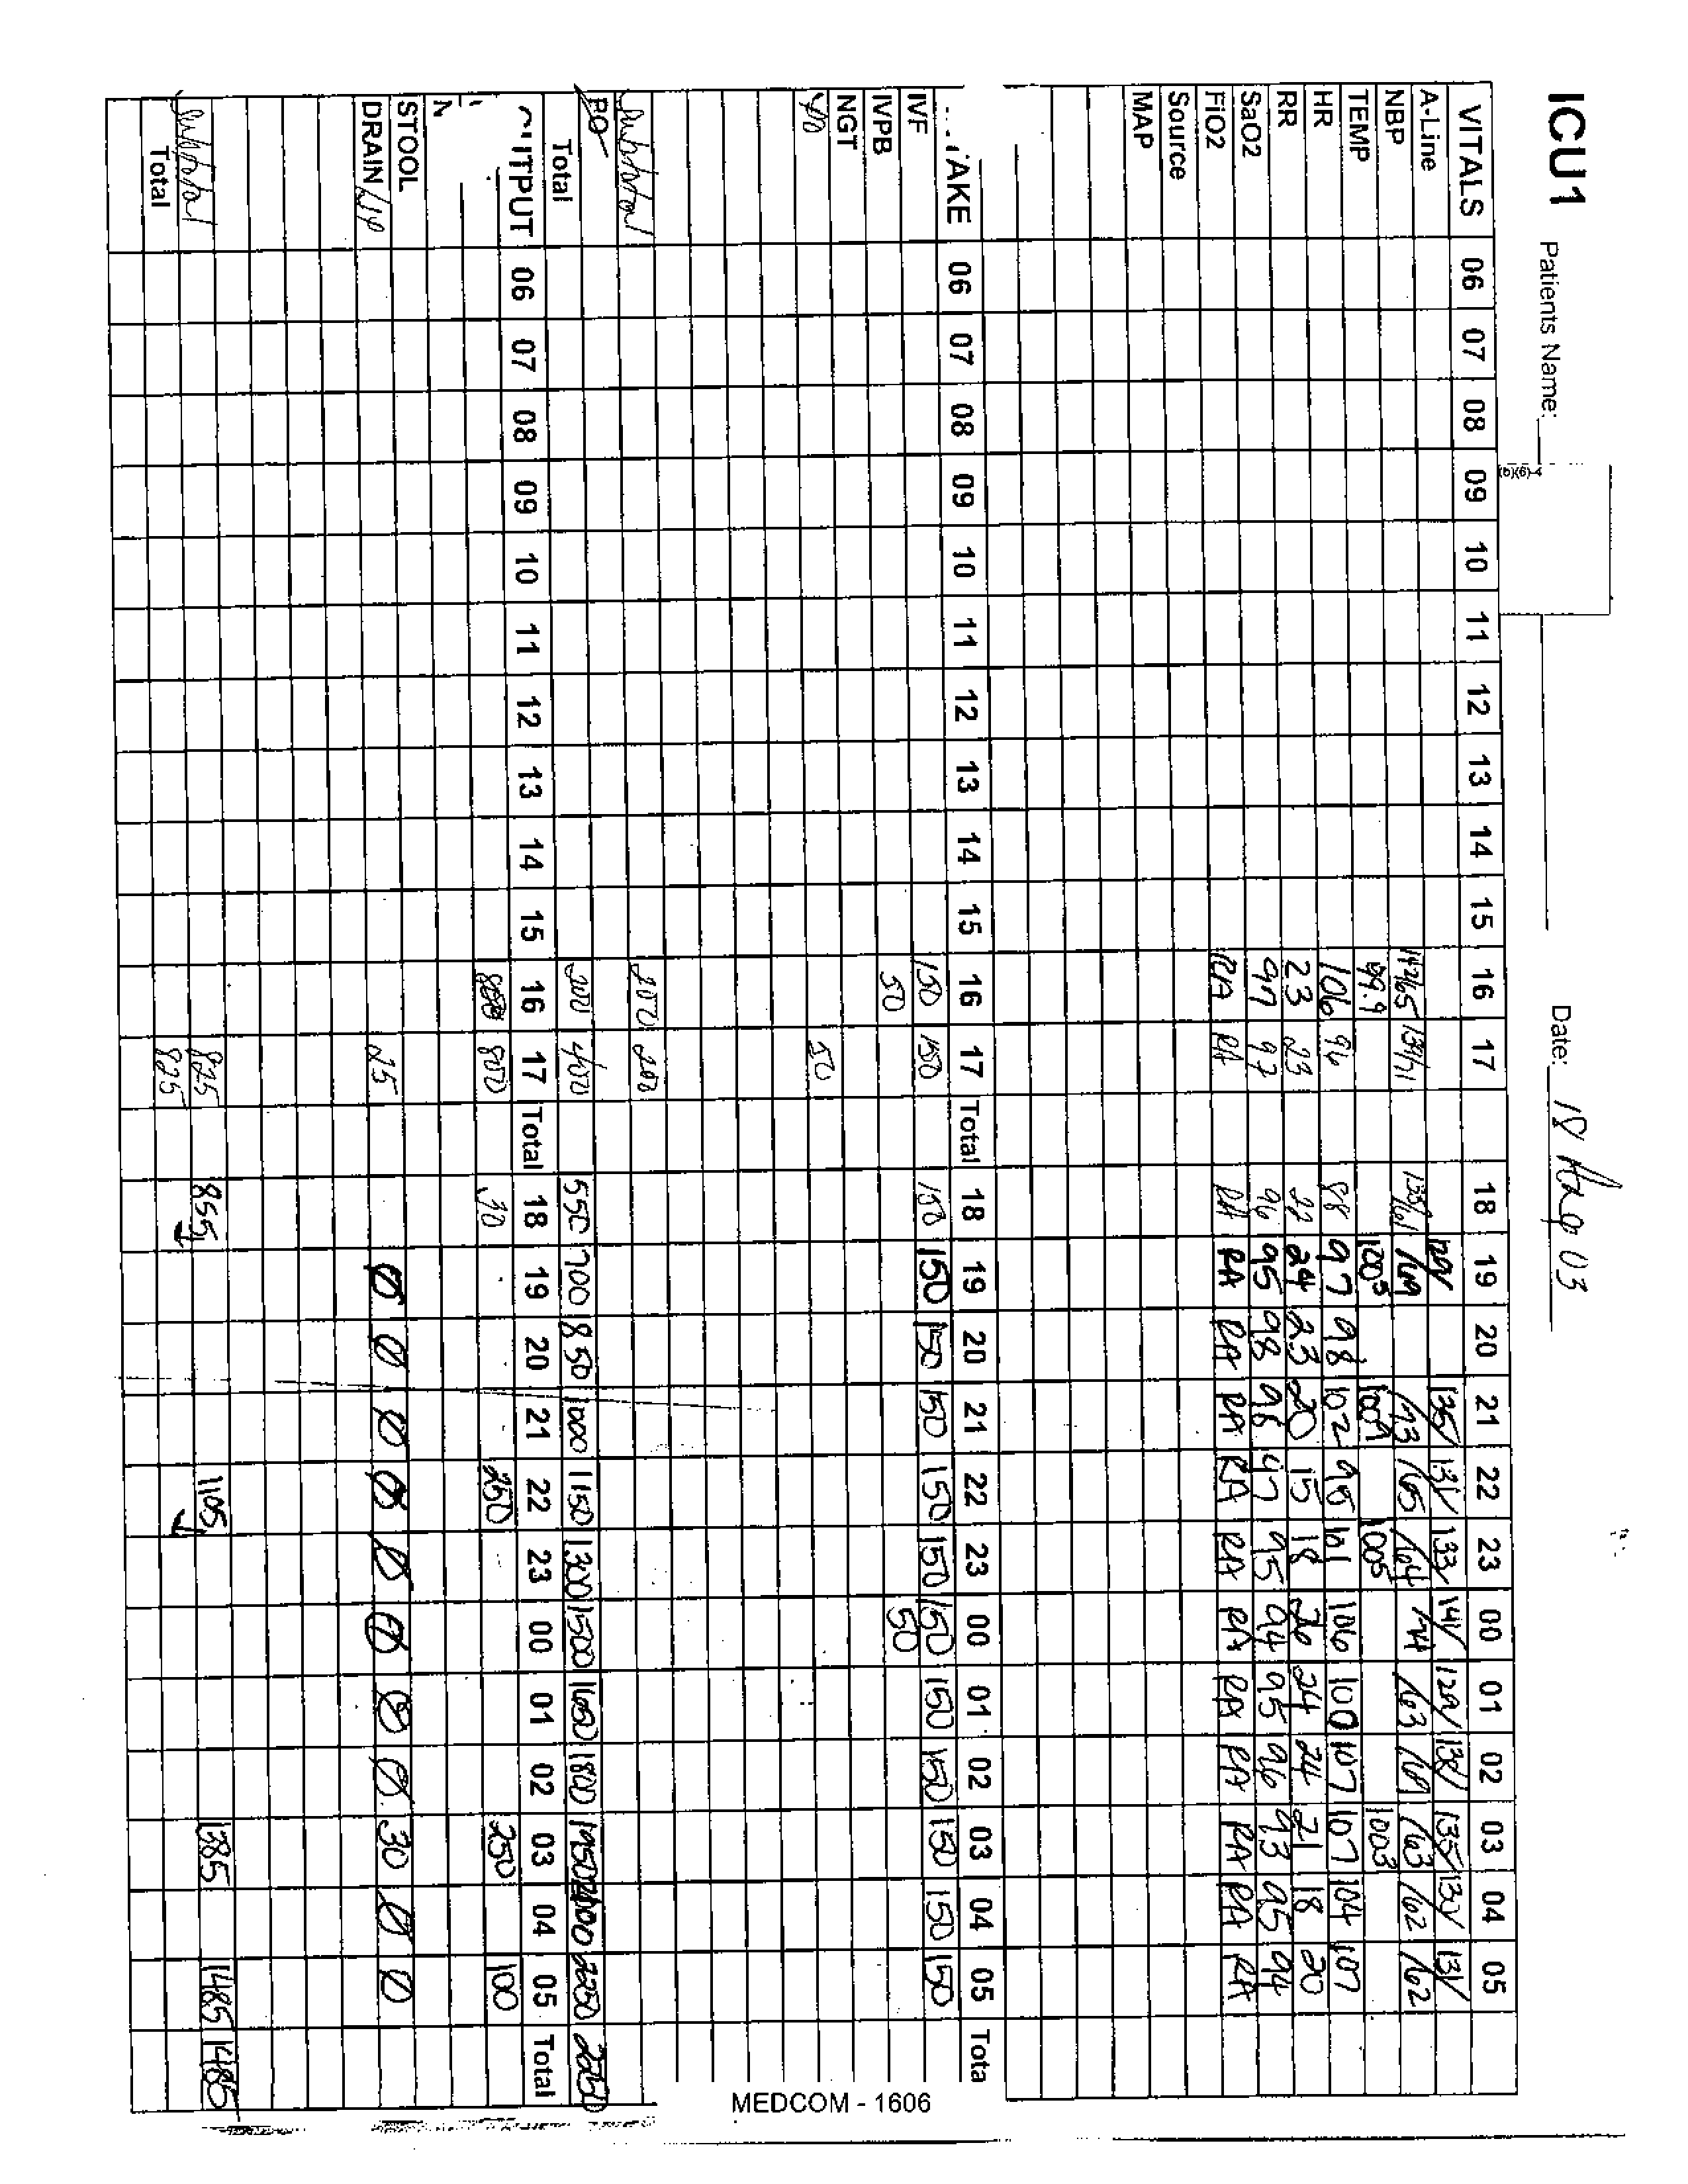 ICU1 Patients Name: Date: 18 Aug 03
(b)(6)-4
VITALS 06 07 08 09 10 11 12 13 14 15 16 17 18 19 20 21 22 23 00 01 02 03 04 05
A-Line 135/ 131/ 133/ 141/ 129/ 132/ 135/ 131/
NBP 142/65 134/71 133/61 /69 /73 /65 /64 /74 /63 /69 /63 /62 /62
TEMP 99.9 1005 1009 1005 1003
HR 106 96 88 97 98 102 95 101 106 100 107 107 104 107
RR 23 23 22 24 23 20 15 18 26 24 24 21 18 20
SaO2 97 97 96 95 98 98 97 95 94 95 96 93 95 94
FiO2 RA RA RA RA RA RA RA RA RA RA RA RA RA RA
Source
MAP
AKE 06 07 08 09 10 11 12 13 14 15 16 17 Total 18 19 20 21 22 23 00 01 02 03 04 05 Tota
IVF 150 150 150 150 150 150 150 150 150 150 150 150 150 150
IVPB 50 50
NGT
po 50
Subtotal 200 200
PO
Total 200 400 550 700 850 1000 1150 1300 1500 1650 1800 1950 2100 2250 2250
ITPUT 06 07 08 09 10 11 12 13 14 15 16 17 Total 18 19 20 21 22 23 00 01 02 03 04 05 Total
800 30 250 250 100
N
STOOL
DRAIN 25 Ø Ø Ø Ø Ø Ø Ø Ø 30 Ø Ø
Subtotal 825 855 1105 1385 1485 1485
Total 825
MEDCOM - 1606